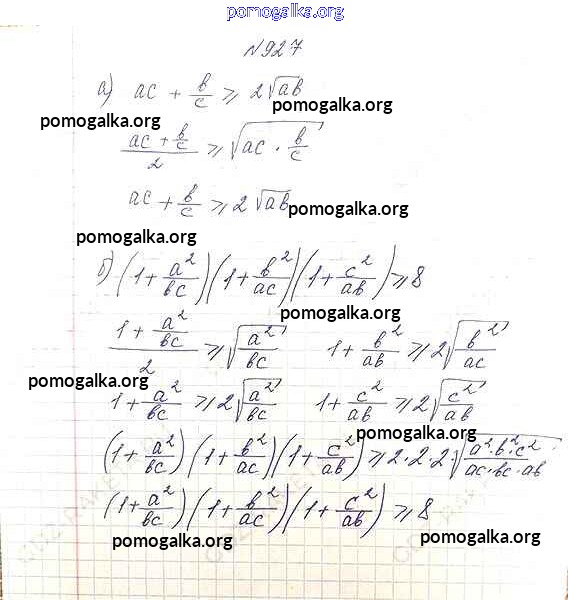 pomogalka.org
№927
а) ac + b/c ⩾ 2√ab
pomogalka.org
pomogalka.org
(ac + b/c)/2 ⩾ √(ac · b/c)
ac + b/c ⩾ 2√ab
pomogalka.org
pomogalka.org
б) (1 + a²/bc)(1 + b²/ac)(1 + c²/ab) ⩾ 8
pomogalka.org
(1 + a²/bc)/2 ⩾ √(a²/bc) 1 + b²/ab ⩾ 2√(b²/ac)
pomogalka.org
1 + a²/bc ⩾ 2√(a²/bc) 1 + c²/ab ⩾ 2√(c²/ab)
pomogalka.org
(1 + a²/bc)(1 + b²/ac)(1 + c²/ab) ⩾ 2·2·2√(a²·b²·c²/ac·bc·ab)
(1 + a²/bc)(1 + b²/ac)(1 + c²/ab) ⩾ 8
pomogalka.org
pomogalka.org